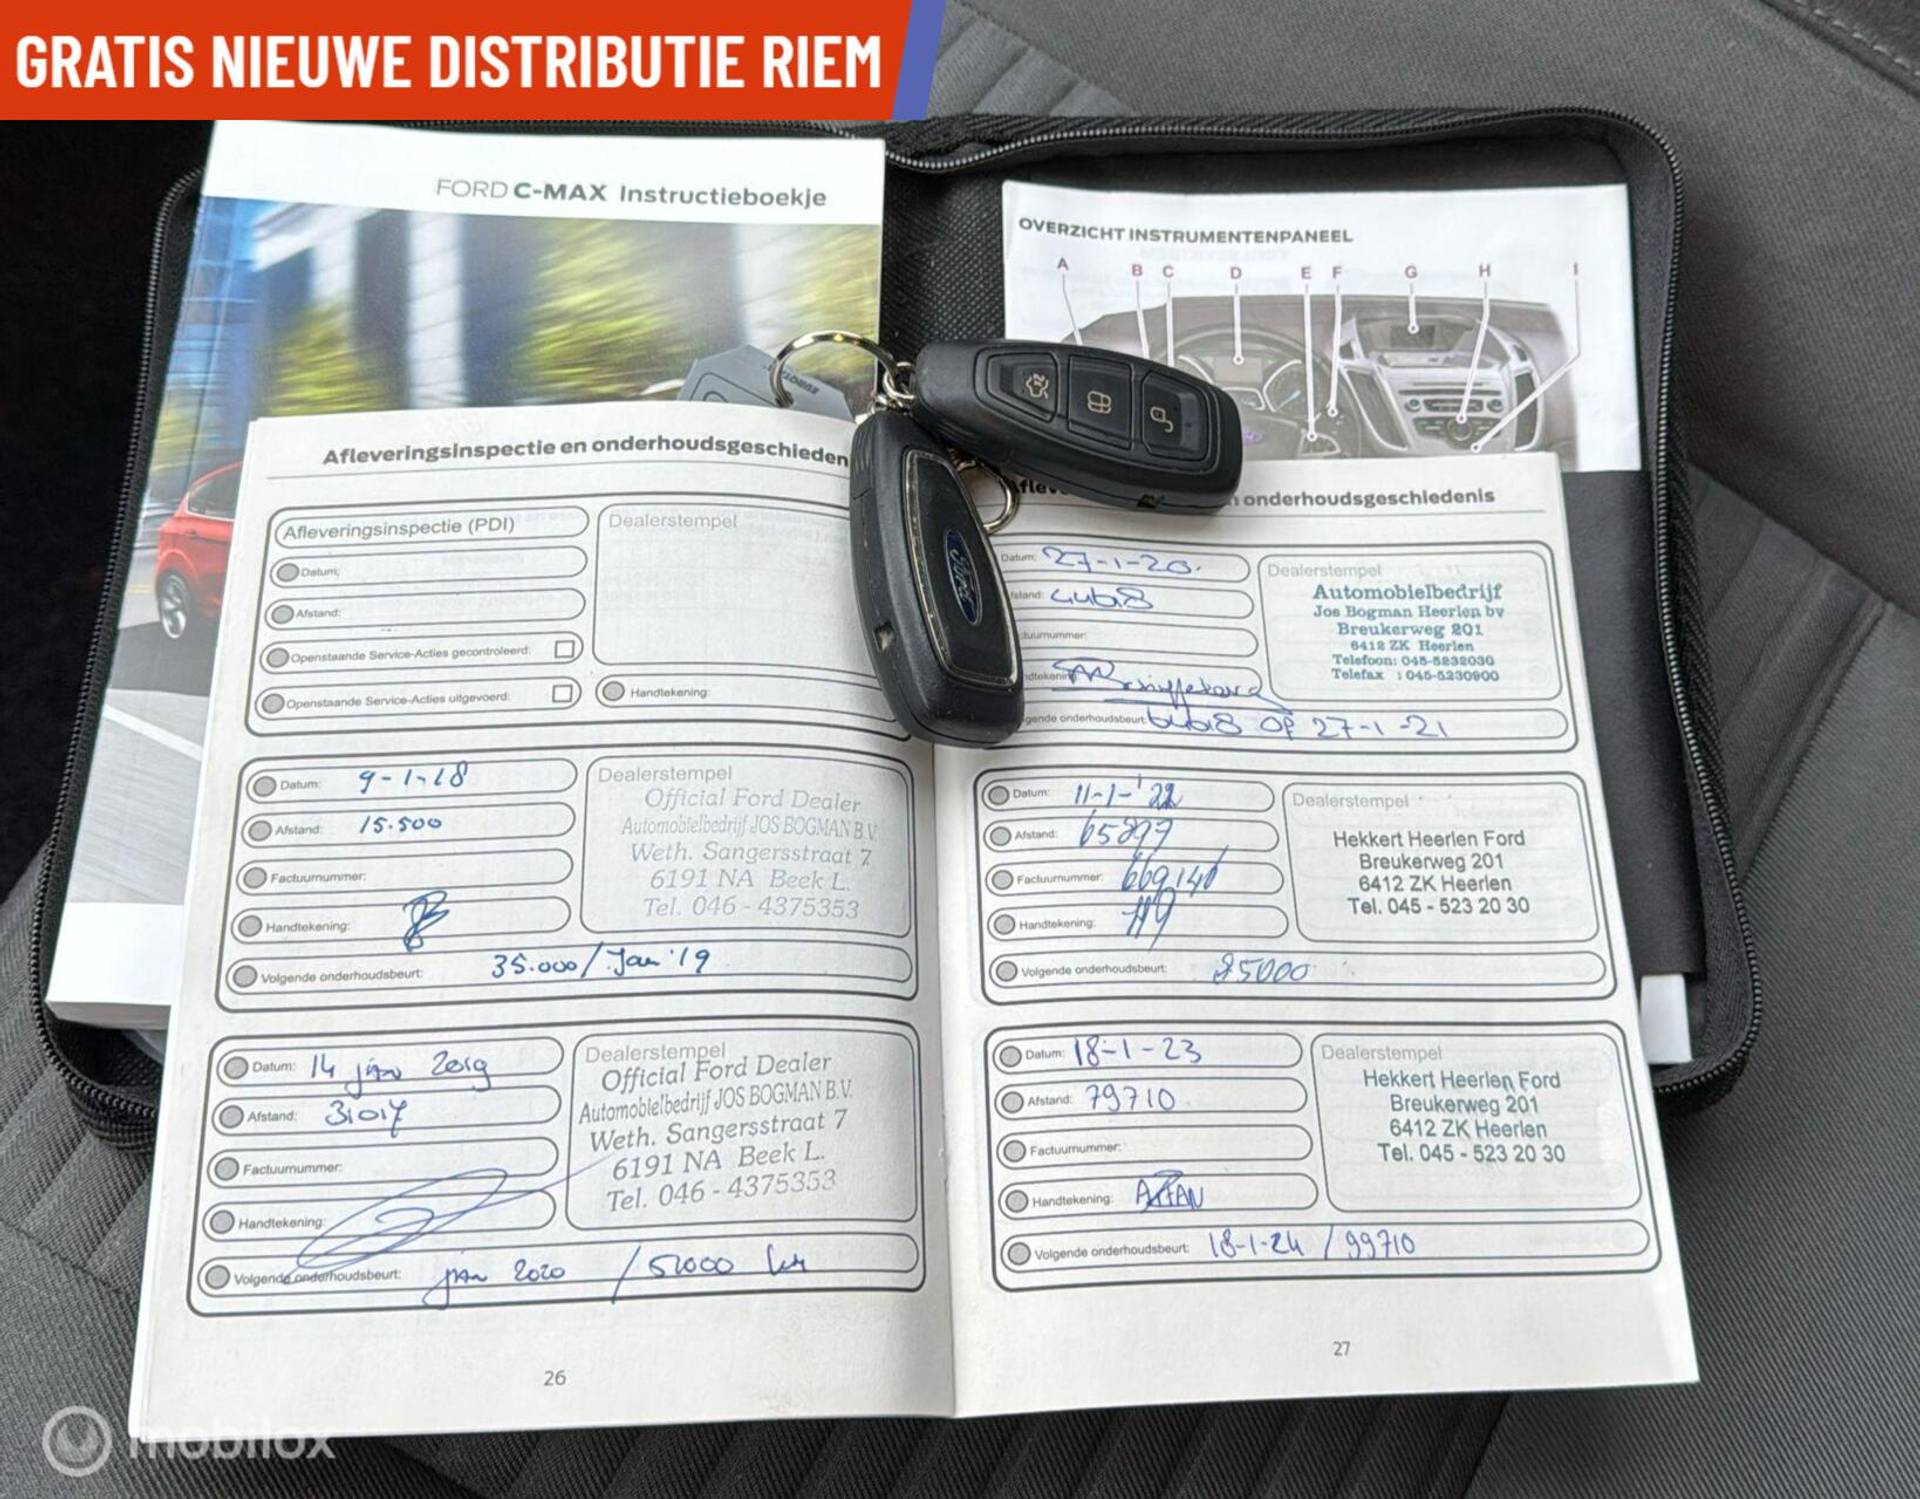 GRATIS NIEUWE DISTRIBUTIE RIEM
FORD C-MAX Instructieboekje
OVERZICHT INSTRUMENTENPANEEL
A B C D E F G H I
Afleveringsinspectie en onderhoudsgeschieden
Afleveringsinspectie (PDI)
Dealerstempel
Datum:
Afstand:
Openstaande Service-Acties gecontroleerd:
Openstaande Service-Acties uitgevoerd:
Handtekening:
Datum: 9-1-18
Afstand: 15.500
Factuurnummer:
Handtekening:
Volgende onderhoudsbeurt: 35.000/Jan '19
Dealerstempel
Official Ford Dealer
Automobielbedrijf JOS BOGMAN B.V.
Weth. Sangersstraat 7
6191 NA Beek L.
Tel. 046 - 4375353
Datum: 14 jan 2019
Afstand: 31017
Factuurnummer:
Handtekening:
Volgende onderhoudsbeurt: jan 2020 / 51000 km
Dealerstempel
Official Ford Dealer
Automobielbedrijf JOS BOGMAN B.V.
Weth. Sangersstraat 7
6191 NA Beek L.
Tel. 046 - 4375353
26
onderhoudsgeschiedenis
Datum: 27-1-20.
Dealerstempel
Automobielbedrijf
Jos Bogman Heerlen bv
Breukerweg 201
6412 ZK Heerlen
Telefoon: 045-5232030
Telefax : 045-5230900
onderhoudsbeurt: op 27-1-21
Datum: 11-1-'22
Afstand:
Factuurnummer:
Handtekening:
Volgende onderhoudsbeurt: 85000
Dealerstempel
Hekkert Heerlen Ford
Breukerweg 201
6412 ZK Heerlen
Tel. 045 - 523 20 30
Datum: 18-1-23
Afstand: 79710
Factuurnummer:
Handtekening:
Volgende onderhoudsbeurt: 18-1-24 / 99710
Dealerstempel
Hekkert Heerlen Ford
Breukerweg 201
6412 ZK Heerlen
Tel. 045 - 523 20 30
27
Ford
mobilox